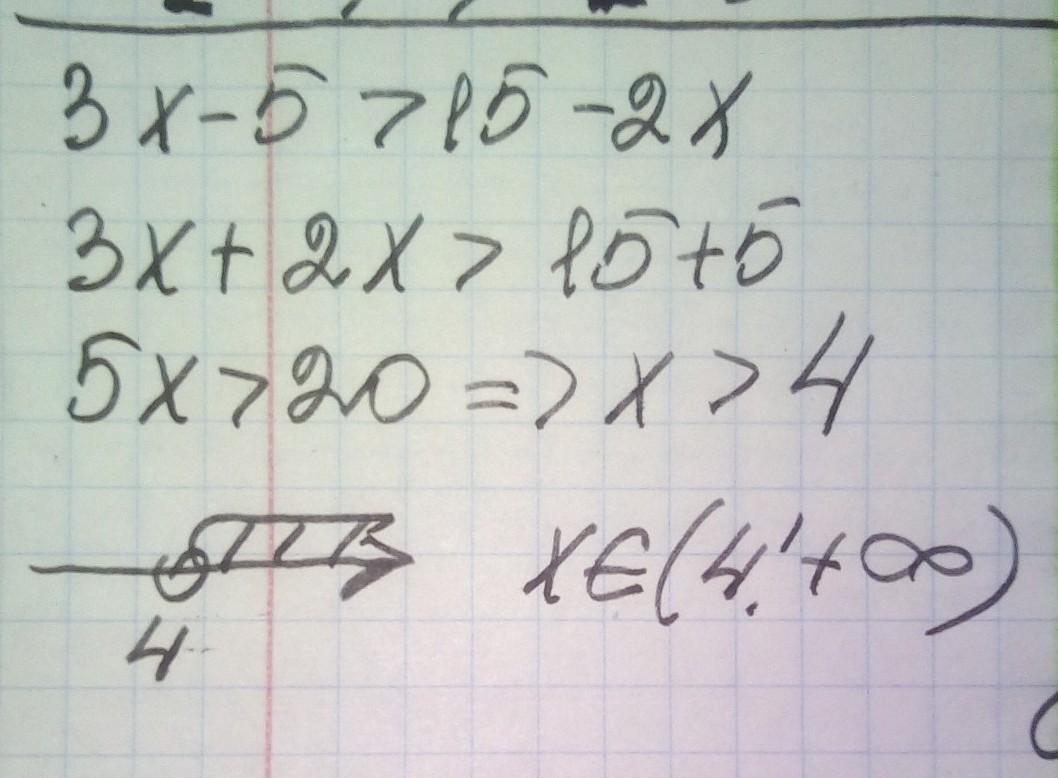 3x-5>15-2x
3x+2x>15+5
5x>20=>x>4
4
x∈(4;+∞)